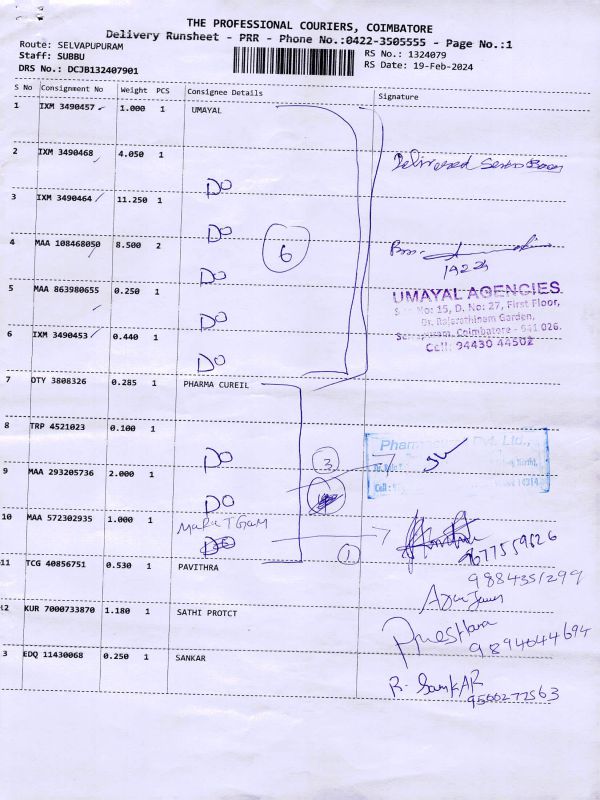 THE PROFESSIONAL COURIERS, COIMBATORE
Delivery Runsheet - PRR - Phone No.:0422-3505555 - Page No.:1
Route: SELVAPUPURAM
RS No.: 1324079
Staff: SUBBU
RS Date: 19-Feb-2024
DRS No.: DCJB132407901
S No Consignment No Weight PCS Consignee Details Signature
1 IXM 3490457 1.000 1 UMAYAL
2 IXM 3490468 4.050 1
Delivered
DO
3 IXM 3490464 11.250 1
DO
6
4 MAA 108468050 8.500 2
DO
5 MAA 863980655 0.250 1
UMAYAL AGENCIES
No: 15, D. No: 27, First Floor,
Garden,
Coimbatore - 641 026.
Cell: 94430 44502
DO
6 IXM 3490453 0.440 1
DO
7 OTY 3808326 0.285 1 PHARMA CUREIL
8 TRP 4521023 0.100 1
Pvt. Ltd.,
DO
3
9 MAA 293205736 2.000 1
DO
10 MAA 572302935 1.000 1
1
11 TCG 40856751 0.530 1 PAVITHRA
9884351299
12 KUR 7000733870 1.180 1 SATHI PROTCT
9894644694
3 EDQ 11430068 0.250 1 SANKAR
R. SankAR
9500272563